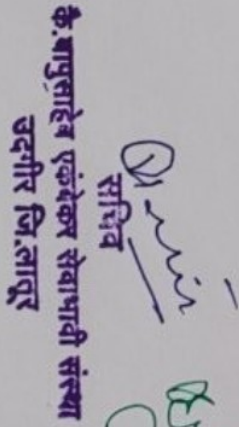 सचिव
कै.बापुसाहेब एकंबेकर सेवाभावी संस्था
उदगीर जि.लातूर